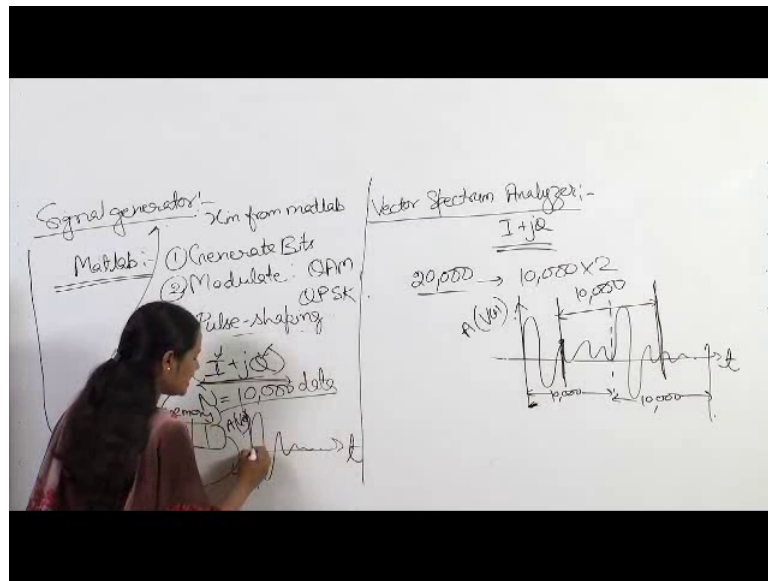 Signal generator:-
Xm from matlab
Matlab:-
① Generate Bits
② Modulate: QAM
QPSK
Pulse-shaping
I+jQ
N = 10,000 data
memory
A(V)
t
Vector Spectrum Analyzer:-
I+jQ
20,000 → 10,000×2
10,000
A(Vol)
t
10,000
10,000